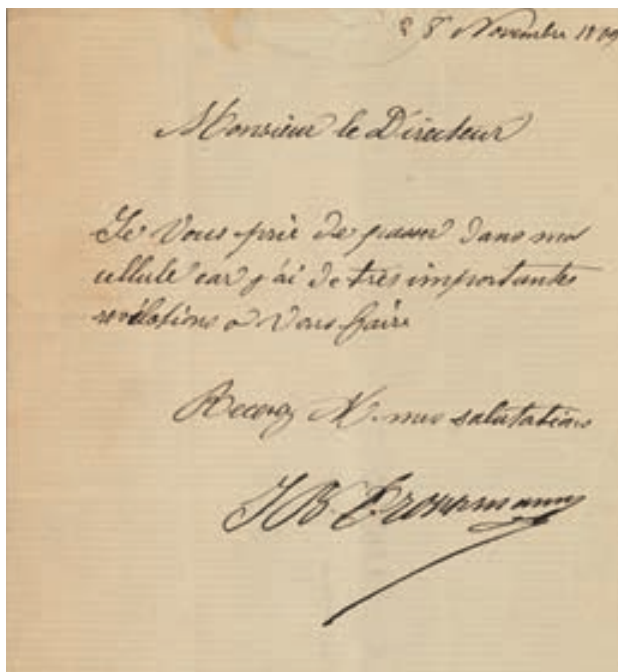 8 Novembre 18
Monsieur le Directeur
Je Vous prie de passer dans ma
cellule car j'ai de très importantes
révélations a Vous faire
Recevez M. mes salutations
J B. Troppmann